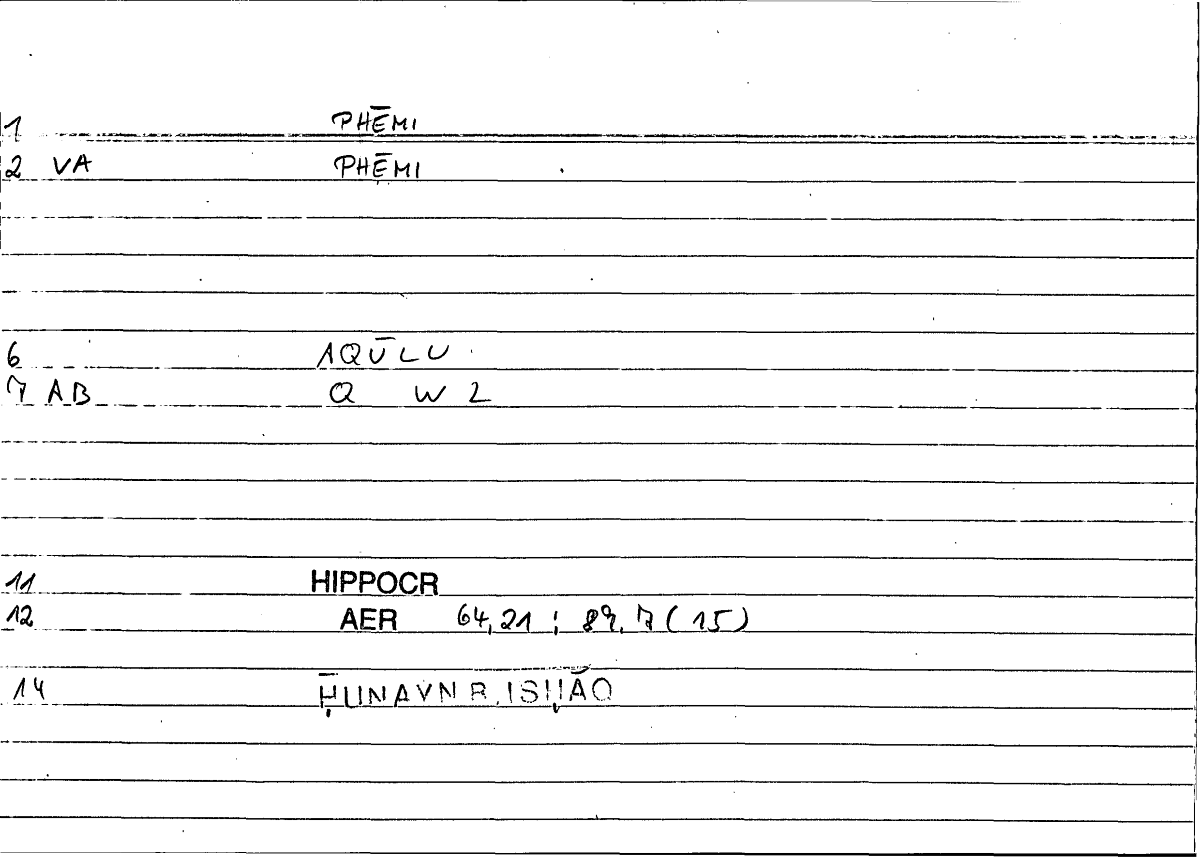 1 PHĒMI
2 VA PHĒMI
6 AQŪLU
7 AB Q W 2
11 HIPPOCR
12 AER 64,21 ; 89,7 (15)
14 ḤUNAYN B. ISḤĀQ